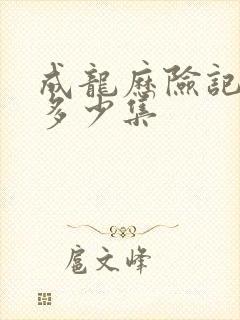 成龍歷險記
多少集
扈文峰